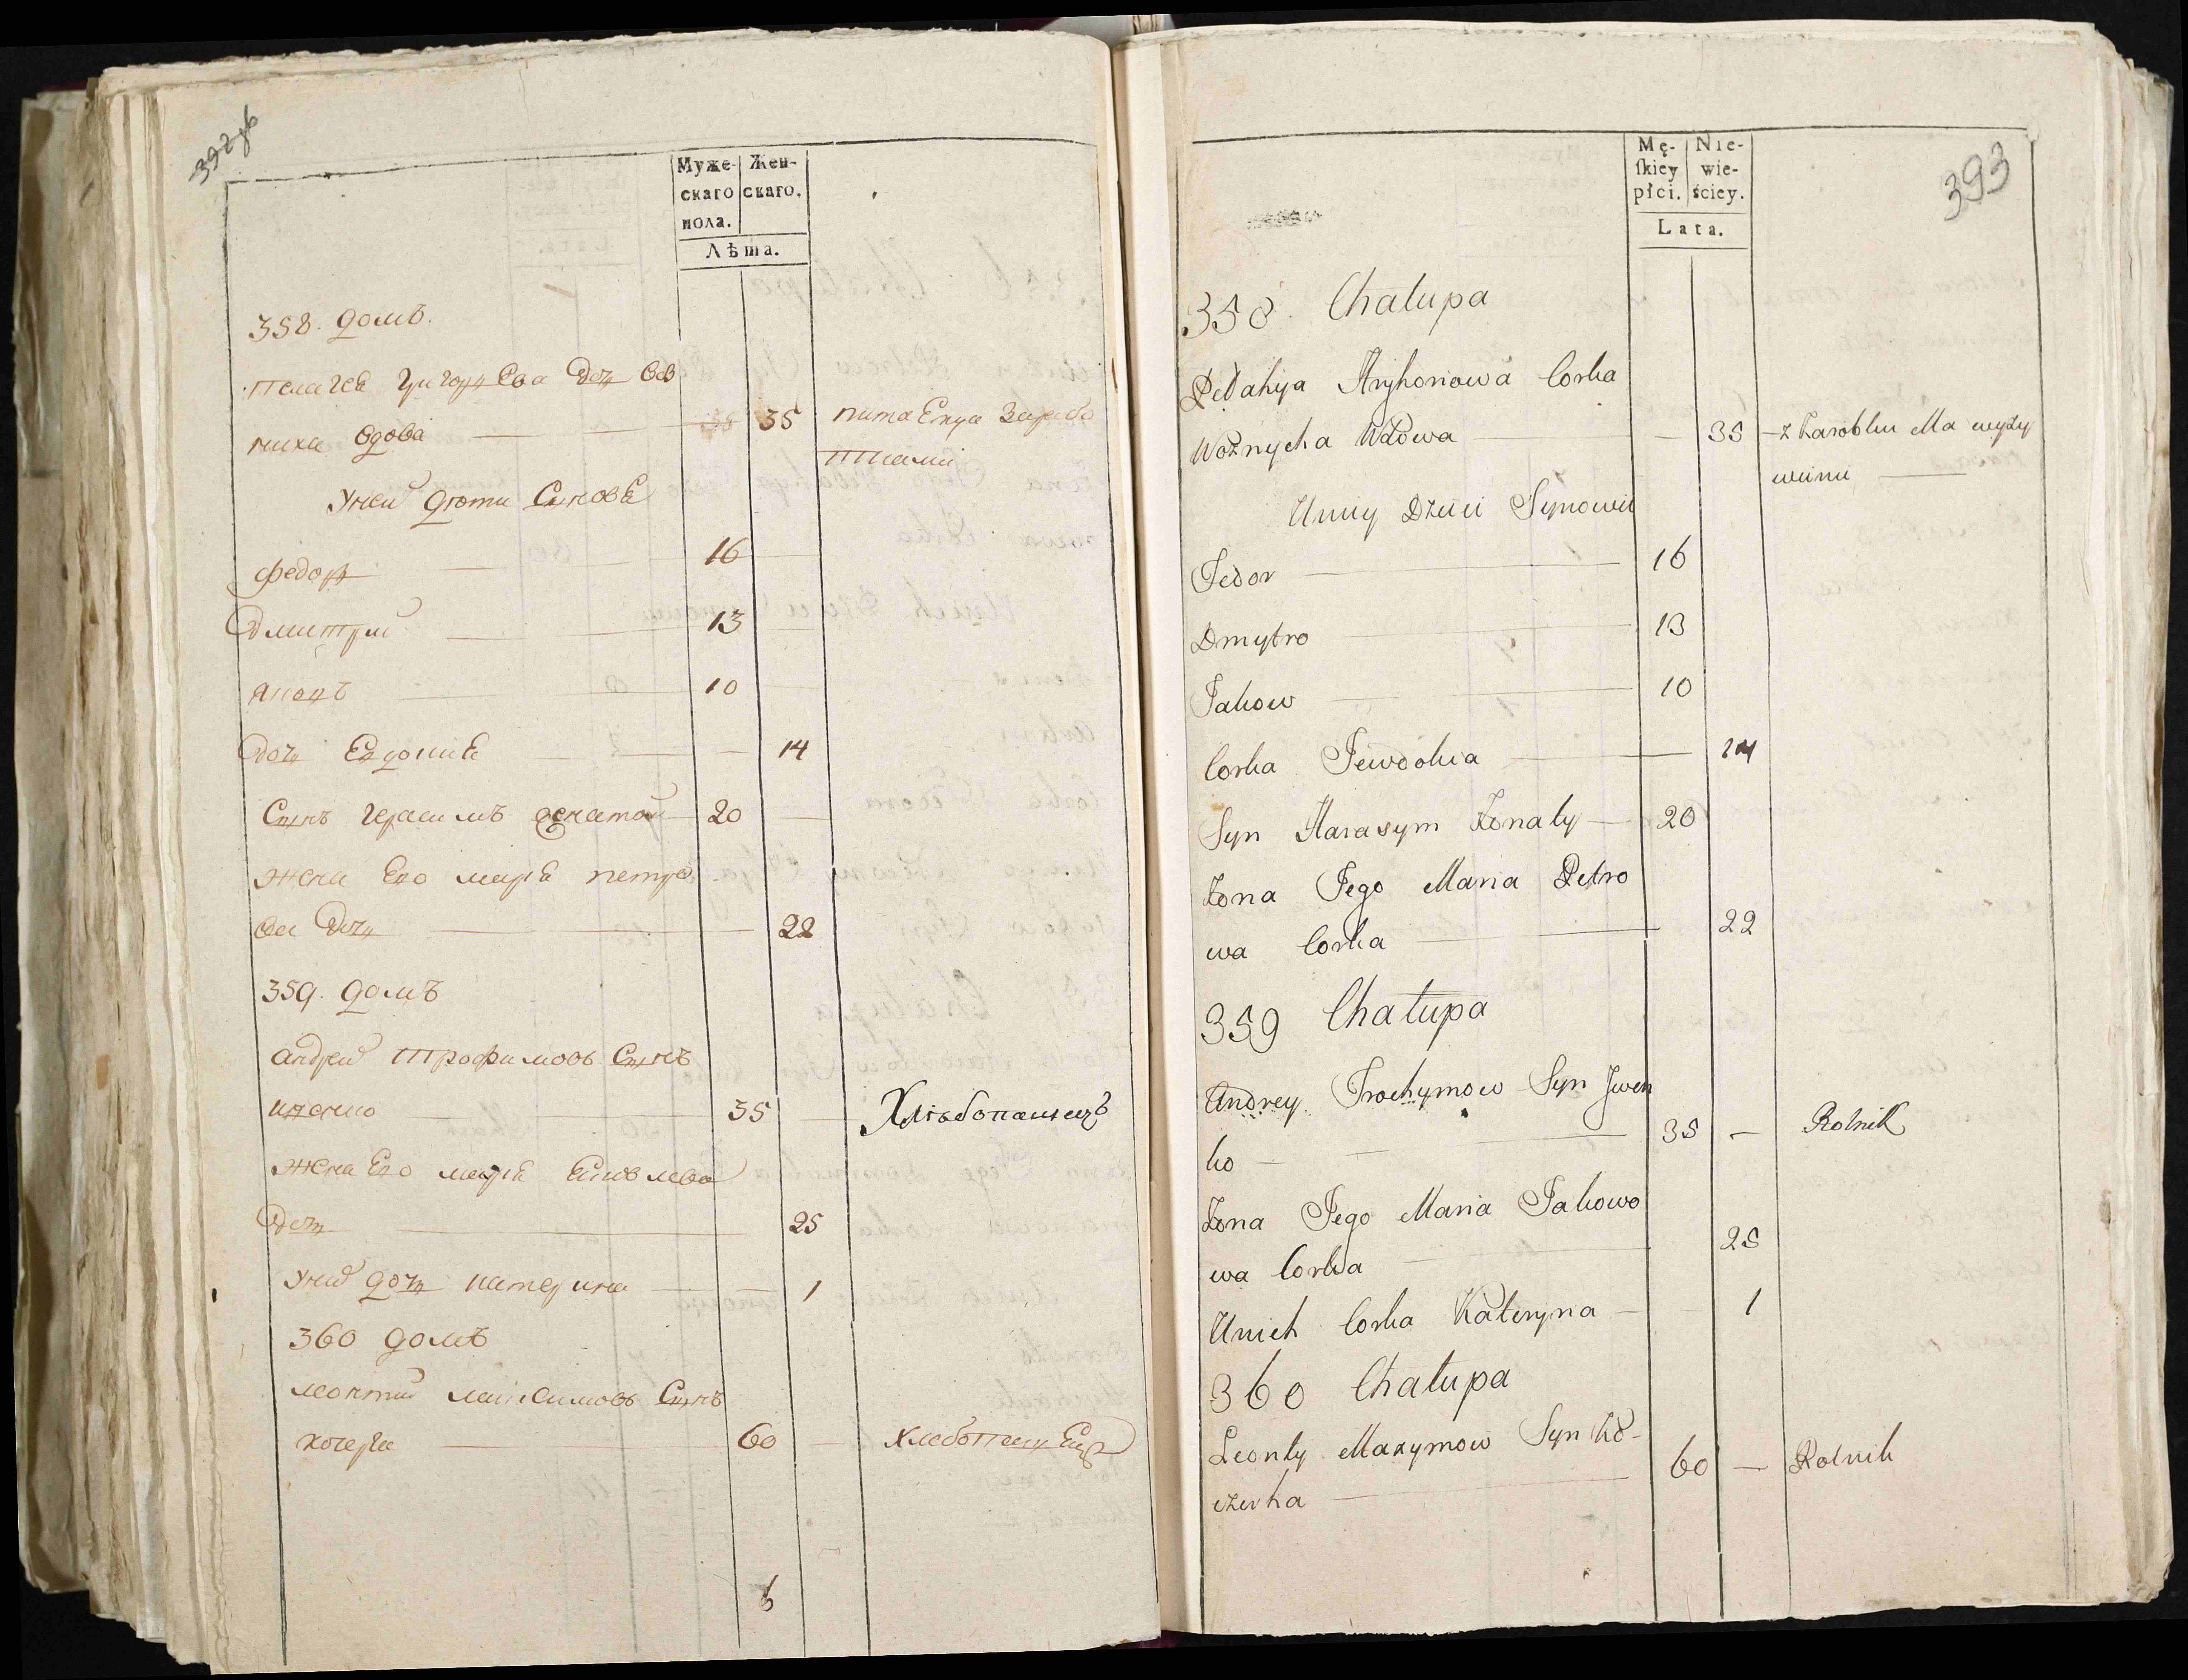 392 об
Муже- Жен-
скаго скаго.
пола.
Лѣта.
358. домъ.
Пелагея Григорьева дочь Воз
ниха вдова 35 питаеться зарабо
тками
У неи дѣти сыновья
Федоръ 16
Дмитрий 13
Яковъ 10
Дочь Евдокия 14
Сынъ Герасимъ женатой 20
Жена его Марья Петро
ва дочь 22
359. домъ
Андрей Трофимовъ сынъ
35 Хлѣбопашецъ
Жена его Марья Яковлева
дочь 25
У них дочь Катерина 1
360 домъ
Леонтий Максимовъ сынъ
Кочерга 60 Хлебопашецъ
6
393
Mę- Nie-
skiey wie-
płci. ściey.
Lata.
358. Chałupa
Pełahija Hryhorowa Corka
Woźnycha Wdowa 35 z Zarobku Ma wyży
wieni
U niey Dzieci Synowie
Fedor 16
Dmytro 13
Jakow 10
Corka Jewdokia 14
Syn Harasym Żonaty 20
Żona Jego Maria Petro
wa Corka 22
359 Chałupa
Andrey Trochymow Syn Jwen
ko 35 — Rolnik
Żona Jego Maria Jakowo
wa Corka 25
U nich Corka Kateryna 1
360 Chałupa
Leonty Maxymow Syn Ko-
czerha 60 — Rolnik